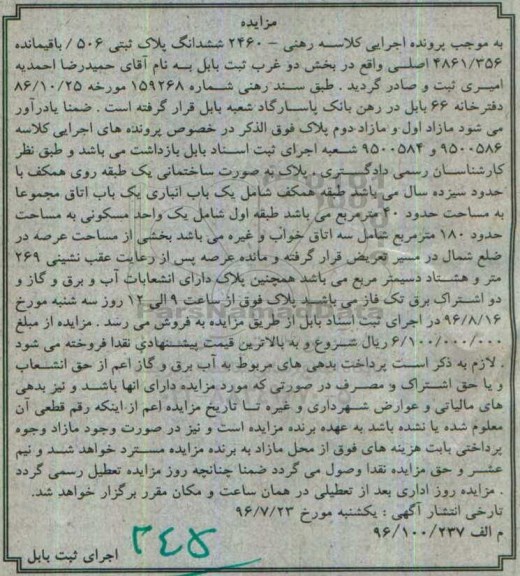 مزایده
به موجب پرونده اجرایی کلاسه رهنی – ۲۴۶۰ ششدانگ پلاک ثبتی ۵۰۶ / باقیمانده
۴۸۶۱/۳۵۶ اصلی واقع در بخش دو غرب ثبت بابل به نام آقای حمیدرضا احمدیه
امیری ثبت و صادر گردید . طبق سند رهنی شماره ۱۵۹۲۶۸ مورخه ۸۶/۱۰/۲۵
دفترخانه ۶۶ بابل در رهن بانک پاسارگاد شعبه بابل قرار گرفته است . ضمنا یادرآور
می شود مازاد اول و مازاد دوم پلاک فوق الذکر در خصوص پرونده های اجرایی کلاسه
۹۵۰۰۵۸۶ و ۹۵۰۰۵۸۴ شعبه اجرای ثبت اسناد بابل بازداشت می باشد و طبق نظر
کارشناسان رسمی دادگستری . پلاک به صورت ساختمانی یک طبقه روی همکف با
حدود سیزده سال می باشد طبقه همکف شامل یک باب انباری یک باب اتاق مجموعا
به مساحت حدود ۴۰ مترمربع می باشد طبقه اول شامل یک واحد مسکونی به مساحت
حدود ۱۸۰ مترمربع شامل سه اتاق خواب و غیره می باشد بخشی از مساحت عرصه در
ضلع شمال در مسیر تعریض قرار گرفته و مانده عرصه پس از رعایت عقب نشینی ۲۶۹
متر و هشتاد دسیمتر مربع می باشد همچنین پلاک دارای انشعابات آب و برق و گاز و
دو اشتراک برق تک فاز می باشد پلاک فوق از ساعت ۹ الی ۱۲ روز سه شنبه مورخ
۹۶/۸/۱۶ در اجرای ثبت اسناد بابل از طریق مزایده به فروش می رسد . مزایده از مبلغ
۶/۱۰۰/۰۰۰/۰۰۰ ریال شروع و به بالاترین قیمت پیشنهادی نقدا فروخته می شود
. لازم به ذکر است پرداخت بدهی های مربوط به آب برق و گاز اعم از حق انشعاب
و یا حق اشتراک و مصرف در صورتی که مورد مزایده دارای انها باشد و نیز بدهی
های مالیاتی و عوارض شهرداری و غیره تا تاریخ مزایده اعم از اینکه رقم قطعی آن
معلوم شده یا نشده باشد به عهده برنده مزایده است و نیز در صورت وجود مازاد وجوه
پرداختی بابت هزینه های فوق از محل مازاد به برنده مزایده مسترد خواهد شد و نیم
عشر و حق مزایده نقدا وصول می گردد ضمنا چنانچه روز مزایده تعطیل رسمی گردد
. مزایده روز اداری بعد از تعطیلی در همان ساعت و مکان مقرر برگزار خواهد شد.
تارخی انتشار آگهی : یکشنبه مورخ ۹۶/۷/۲۳
م الف ۹۶/۱۰۰/۲۳۷
اجرای ثبت بابل
۲۴۵
ParsNamadData